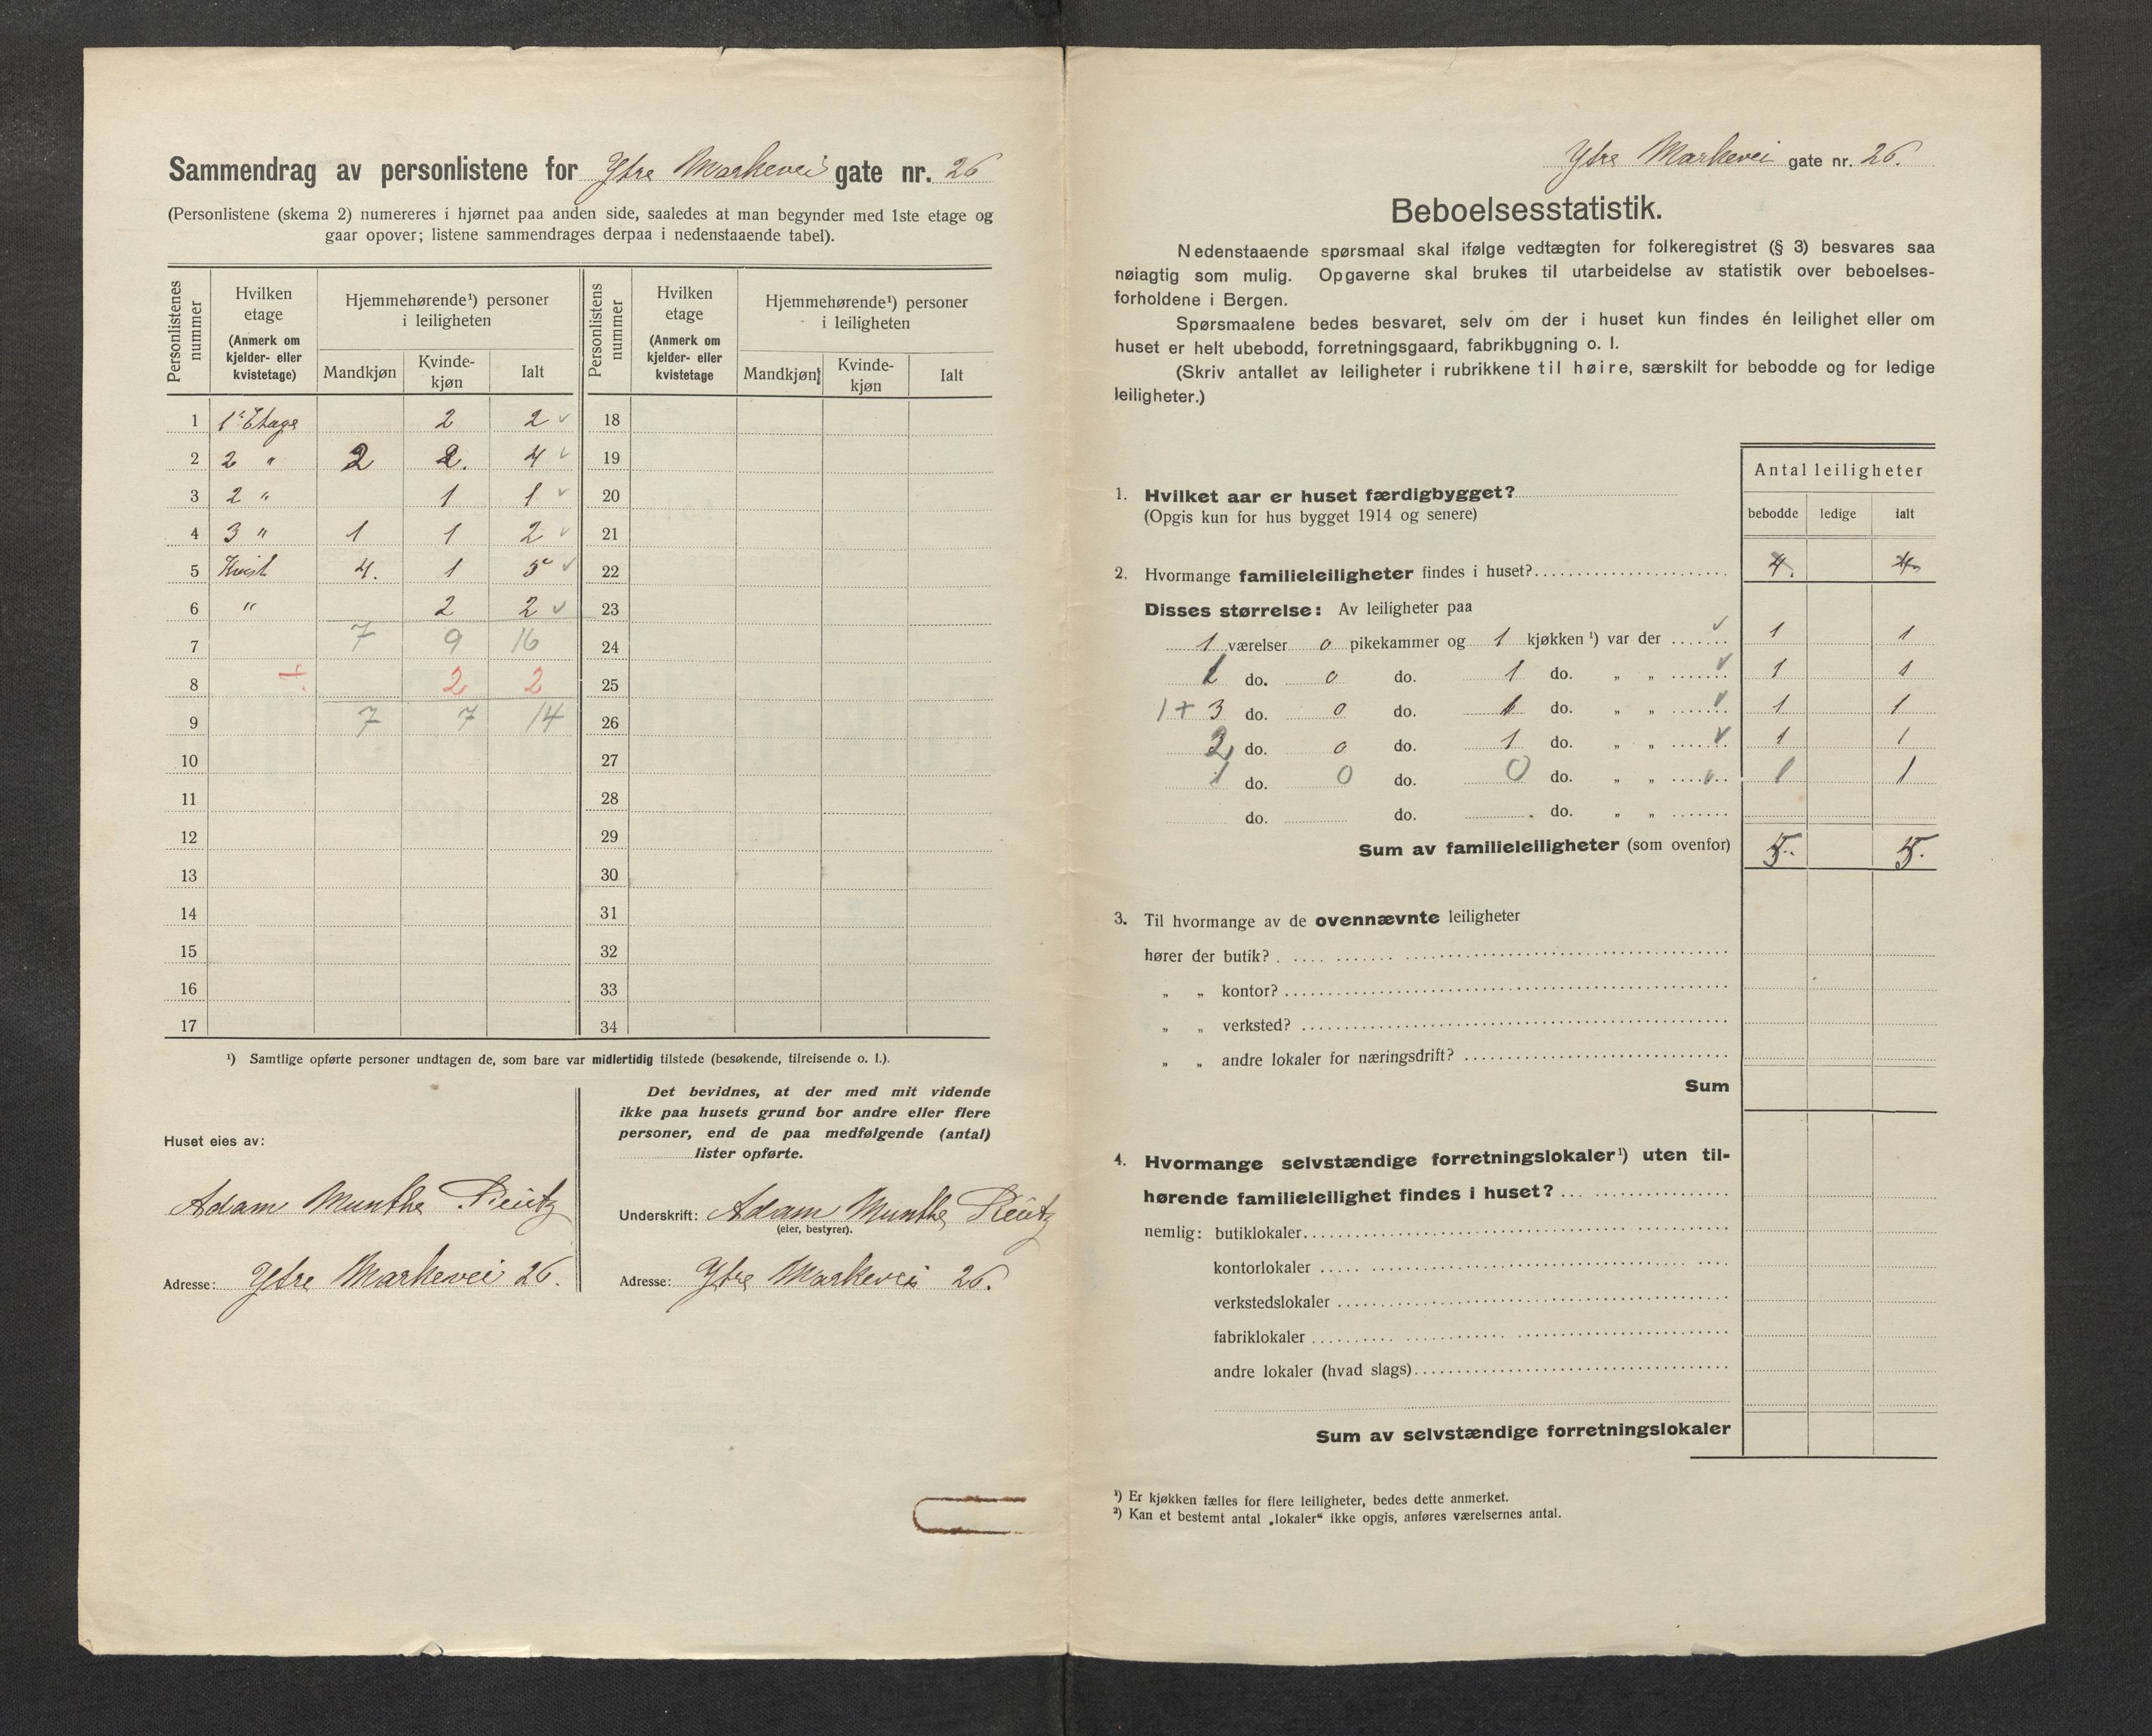 Sammendrag av personlistene for Ytre Markevei gate nr. 26
(Personlistene (skema 2) numereres i hjørnet paa anden side, saaledes at man begynder med 1ste etage og
gaar opover; listene sammendrages derpaa i nedenstaaende tabel).
Personlistenes nummer
Hvilken etage
(Anmerk om kjelder- eller kvistetage)
Hjemmehørende¹) personer i leiligheten
Mandkjøn
Kvinde-kjøn
Ialt
Personlistens nummer
Hvilken etage
(Anmerk om kjelder- eller kvistetage
Hjemmehørende¹) personer i leiligheten
Mandkjøn
Kvinde-kjøn
Ialt
1 1ᵉ Etage 2 2 ✓ 18
2 2 " 2 2. 4 ✓ 19
3 2 " 1 1 ✓ 20
4 3 " 1 1 2 ✓ 21
5 Kvist 4. 1 5 ✓ 22
6 " 2 2 ✓ 23
7 7 9 16 24
8 ÷ 2 2 25
9 7 7 14 26
10 27
11 28
12 29
13 30
14 31
15 32
16 33
17 34
¹) Samtlige opførte personer undtagen de, som bare var midlertidig tilstede (besøkende, tilreisende o. l.).
Huset eies av:
Adam Munthe
Adresse: Ytre Markevei 26.
Det bevidnes, at der med mit vidende
ikke paa husets grund bor andre eller flere
personer, end de paa medfølgende (antal)
lister opførte.
Underskrift: Adam Munthe
(eier, bestyrer).
Adresse: Ytre Markevei 26.
Ytre Markevei gate nr. 26.
Beboelsesstatistik.
Nedenstaaende spørsmaal skal ifølge vedtægten for folkeregistret (§ 3) besvares saa
nøiagtig som mulig. Opgaverne skal brukes til utarbeidelse av statistik over beboelses-
forholdene i Bergen.
Spørsmaalene bedes besvaret, selv om der i huset kun findes én leilighet eller om
huset er helt ubebodd, forretningsgaard, fabrikbygning o. l.
(Skriv antallet av leiligheter i rubrikkene til høire, særskilt for bebodde og for ledige
leiligheter.)
Antal leiligheter
bebodde ledige ialt
1. Hvilket aar er huset færdigbygget?
(Opgis kun for hus bygget 1914 og senere)
2. Hvormange familieleiligheter findes i huset? 4. 4.
Disses størrelse: Av leiligheter paa
1 værelser 0 pikekammer og 1 kjøkken ¹) var der ✓ 1 1
do. 0 do. 1 do. " " ✓ 1 1
1 + 3 do. 0 do. 1 do. " " ✓ 1 1
2 do. 0 do. 1 do. " " ✓ 1 1
1 do. 0 do. 0 do. " " ✓ 1 1
do. do. do. " "
Sum av familieleiligheter (som ovenfor) 5. 5.
3. Til hvormange av de ovennævnte leiligheter
hører der butik?
" " kontor?
" " verksted?
" " andre lokaler for næringsdrift?
Sum
4. Hvormange selvstændige forretningslokaler¹) uten til-
hørende familieleilighet findes i huset?
nemlig: butiklokaler
kontorlokaler
verkstedslokaler
fabriklokaler
andre lokaler (hvad slags)
Sum av selvstændige forretningslokaler
¹) Er kjøkken fælles for flere leiligheter, bedes dette anmerket.
²) Kan et bestemt antal „lokaler“ ikke opgis, anføres værelsernes antal.